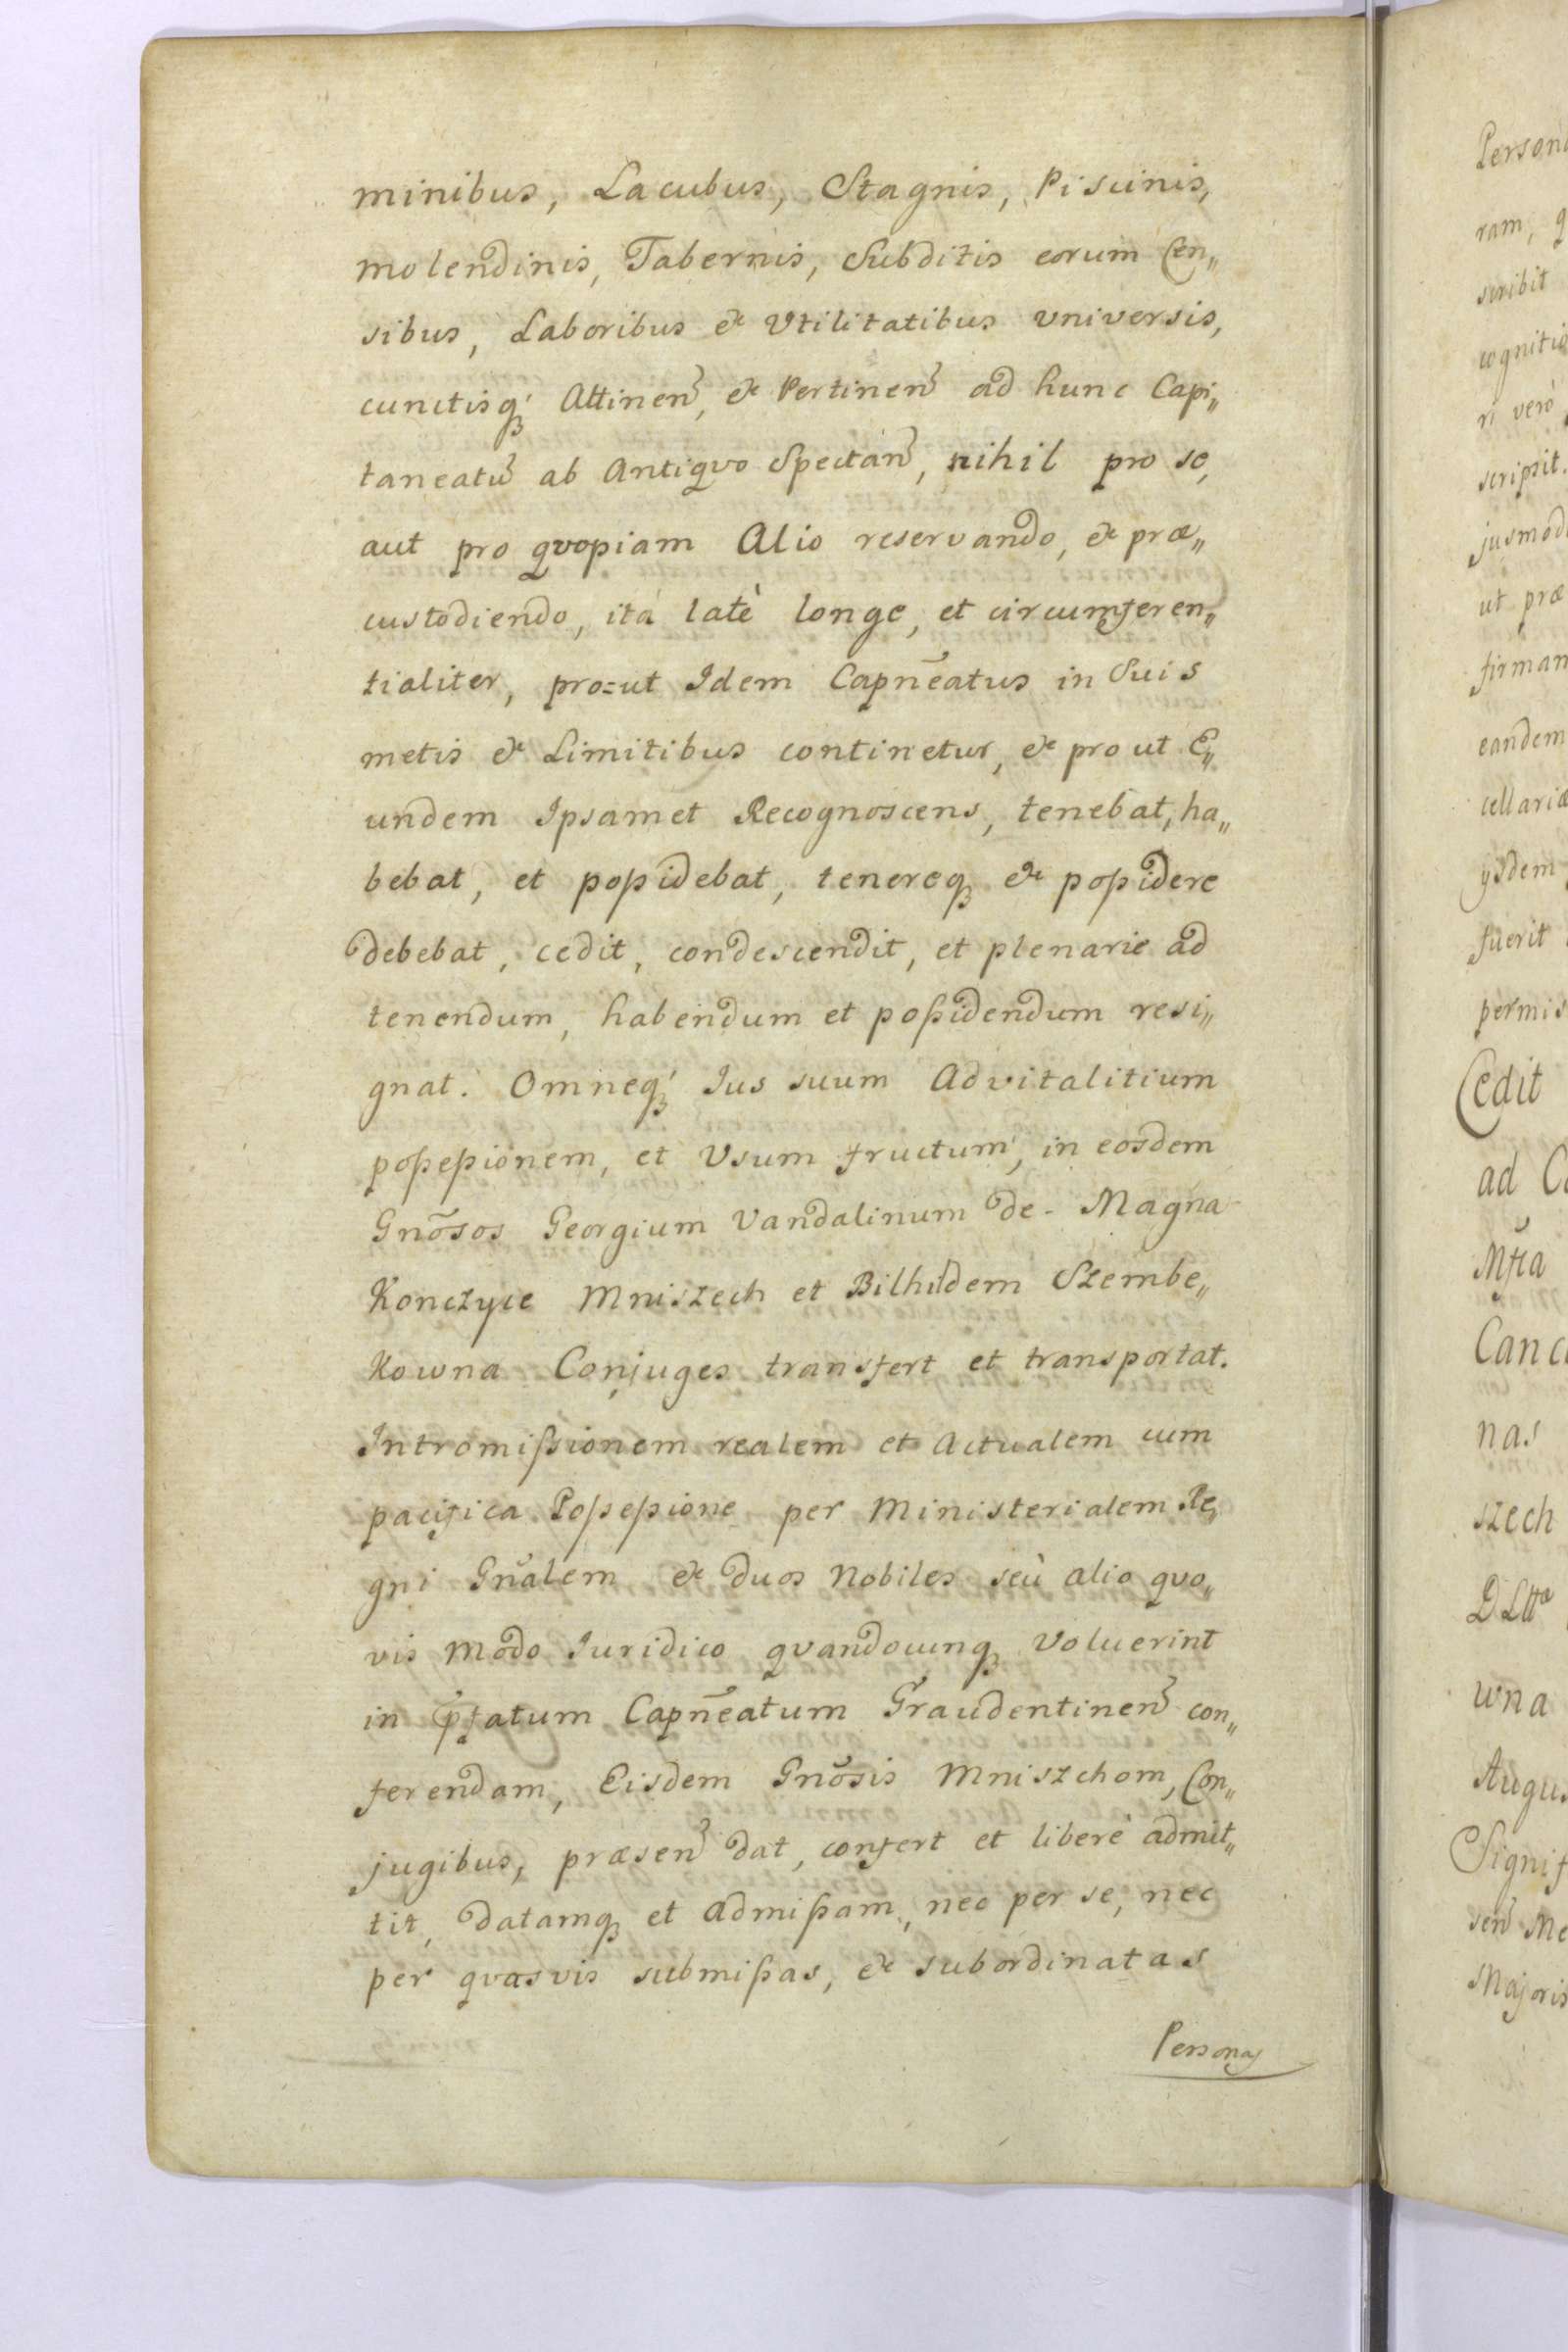 minibus, Lacubus, Stagnis, Piscinis,
molendinis, Tabernis, Subditis eorum Cen„
sibus, Laboribus & Vtilitatibus vniversis,
cunctisq́; Attinen̄, & Pertinen̄ ad hunc Capi„
taneatū ab Antiqvo Spectan̄, nihil pro se,
aut pro qvopiam Alio reservando, & præ„
custodiendo, itá latè longe, et circumferen„
tialiter, pro=ut Idem Capn̄eatus in Suis
metis & Limitibus continetur, & pro ut E„
undem Ipsamet Recognoscens, tenebat, ha„
bebat, et poßidebat, tenereq; & poßidere
debebat, cedit, condescendit, et plenarie ad
tenendum, habendum et poßidendum resi„
gnat. Omneq́; Jus suum Advitalitium
poßeßionem, et Vsum fructum, in eosdem
Gnōsos Georgium Vandalinum de - Magna
Konczyce Mniszech et Bilhildem Szembe„
Kowna Conjuges transfert et transportat.
Intromißionem realem et Actualem cum
pacifica Poßeßione per Ministerialem Re„
gni Gn̄alem & duos Nobiles seù alio qvo„
vis modo Juridico qvandocunq; Voluerint
in pfatum Capn̄eatum Graudentinen̄ con„
ferendam, Eisdem Gnōsis Mniszchom, Con„
jugibus, præsen̄ dat, confert et liberè admit„
tit, datamq; et admißam, nec per se, nec
per qvasvis submißas, & subordinatas
Personas
Person
ram, q
scribit
cognitio
ri verò
scripsit.
jusmodi
ut præ
firman
eandem
cellariæ
ysdem
fuerit
permis
Cedit
ad C
Mfta
Canc
nas
szech
wna
Augus
Signif
sen̄ Me
Majoris